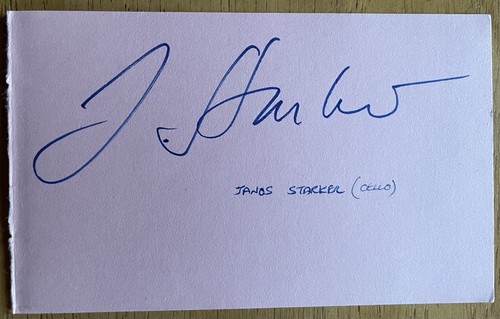 J. Starker
JANOS STARKER (CELLO)